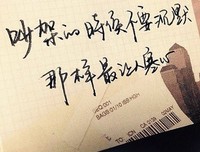 吵架的時候不要沉默
那样最让人寒心